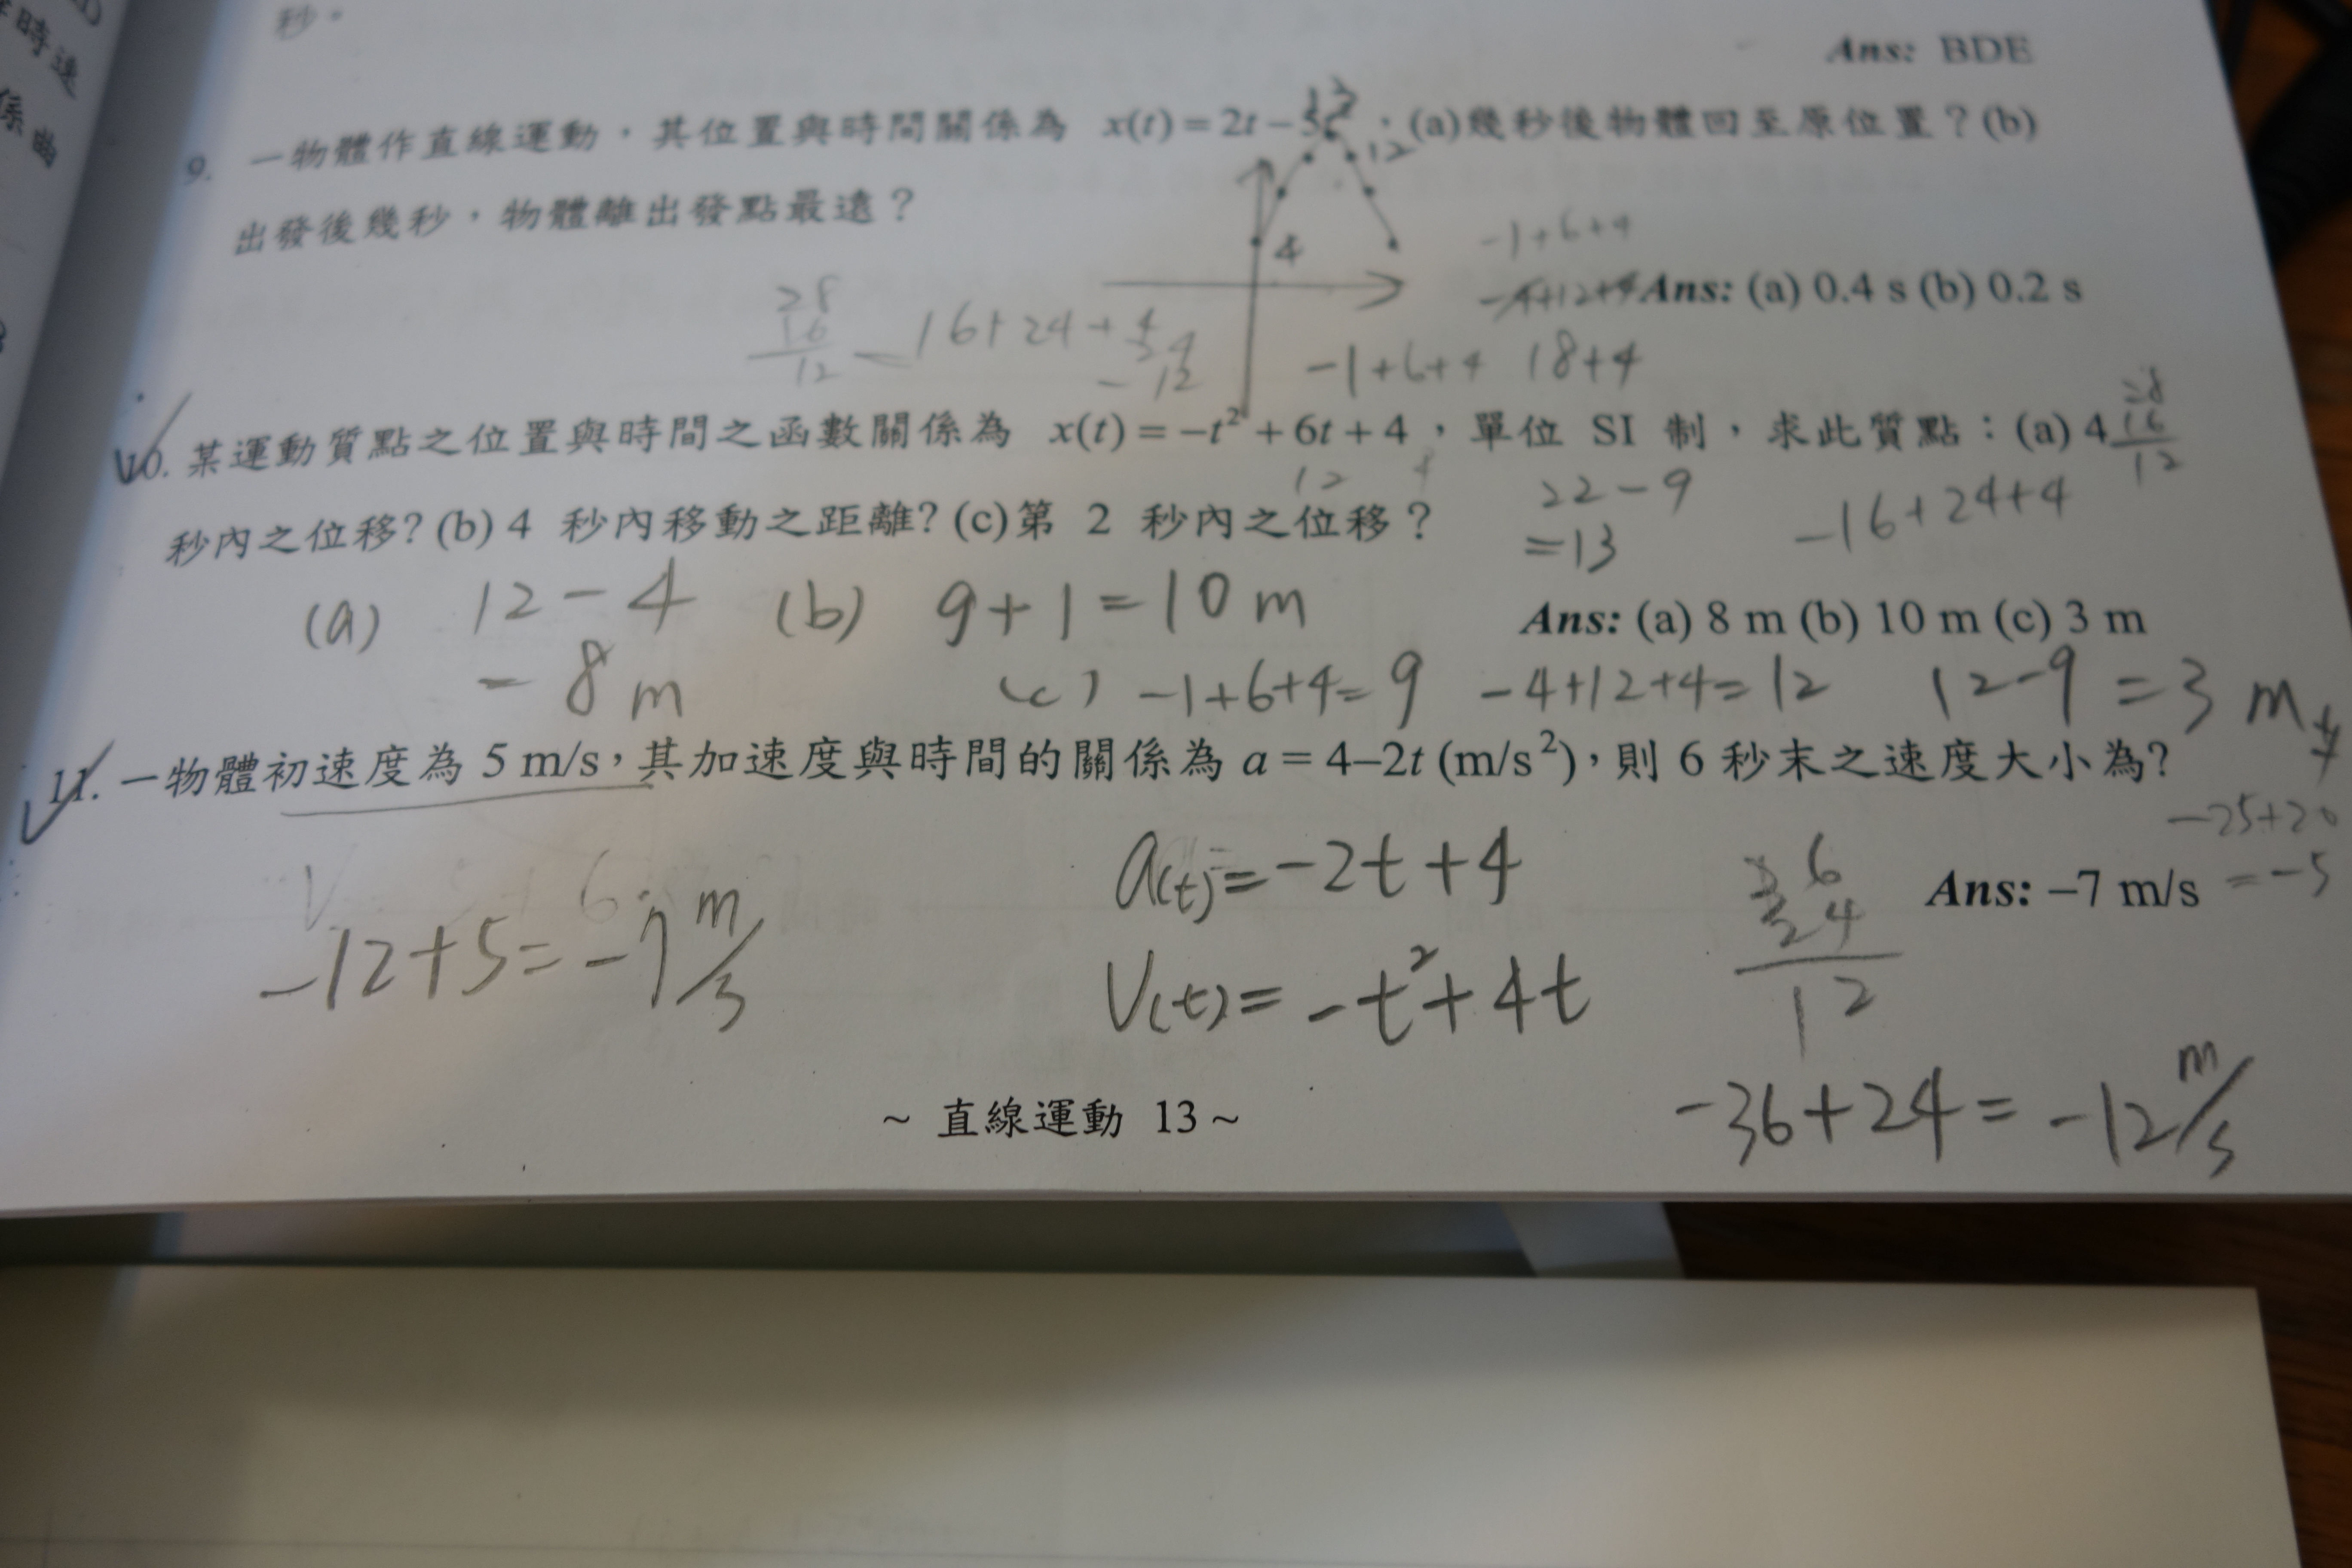 秒。
Ans: BDE
9. 一物體作直線運動，其位置與時間關係為 x(t) = 2t – 5t²，(a)幾秒後物體回至原位置？(b)
出發後幾秒，物體離出發點最遠？
12
4
-1+6+4
-4+12+4
Ans: (a) 0.4 s (b) 0.2 s
28
16
12
-16+24+4
-12
-1+6+4 18+4
10. 某運動質點之位置與時間之函數關係為 x(t) = –t² + 6t + 4，單位 SI 制，求此質點：(a) 4
28
16
12
秒內之位移? (b) 4 秒內移動之距離? (c)第 2 秒內之位移？
12
22-9
=13
-16+24+4
(a) 12-4
= 8 m
(b) 9+1=10 m
Ans: (a) 8 m (b) 10 m (c) 3 m
(c) -1+6+4=9 -4+12+4=12 12-9=3 m
11. 一物體初速度為 5 m/s，其加速度與時間的關係為 a = 4–2t (m/s²)，則 6 秒末之速度大小為?
-25+20
=-5
a(t)=-2t+4
Ans: –7 m/s
-12+5=-7 m/s
V(t)=-t²+4t
36
24
12
-36+24=-12 m/s
~ 直線運動 13 ~